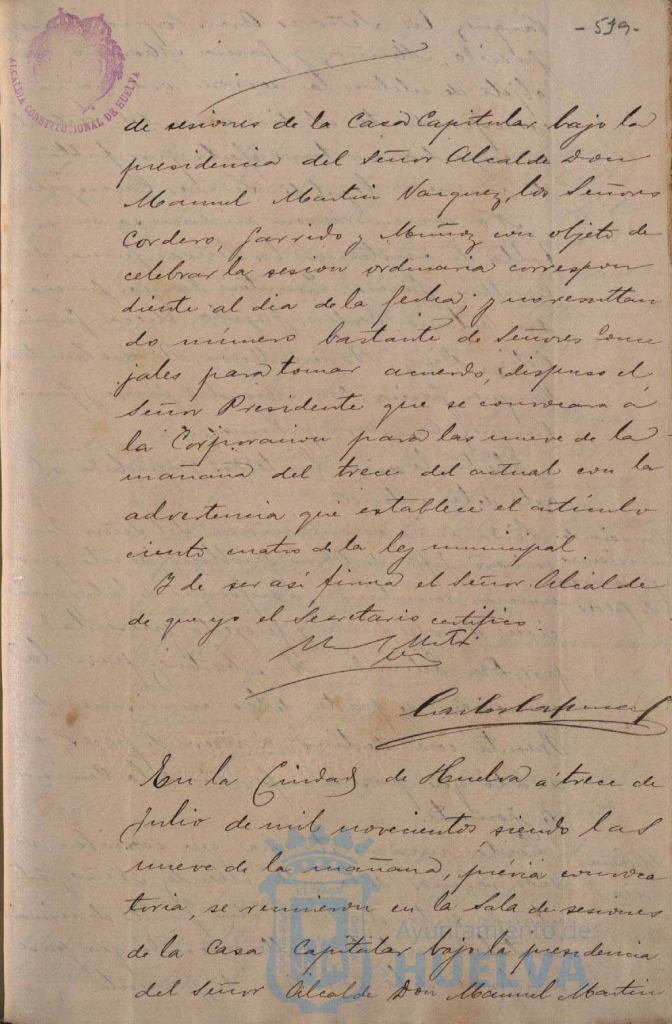 - 519 -
ALCALDIA CONSTITUCIONAL DE HUELVA
de sesiones de la Casa Capitular bajo la
presidencia del Señor Alcalde Don
Manuel Martin Vazquez, los Señores
Cordero, Garrido y Muñoz con objeto de
celebrar la sesion ordinaria correspon
diente al dia de la fecha; y no resultan
do número bastante de Señores Conce
jales para tomar acuerdo, dispuso el
Señor Presidente que se convocara á
la Corporacion para las nueve de la
mañana del trece del actual con la
advertencia que establece el artículo
ciento cuatro de la ley municipal.
Y de ser así firma el Señor Alcalde
de que yo el Secretario certifico.
En la Ciudad de Huelva á trece de
Julio de mil novecientos, siendo las
nueve de la mañana, prévia convoca
toria, se reunieron en la Sala de sesiones
de la Casa Capitular bajo la presidencia
del Señor Alcalde Don Manuel Martin
Ayuntamiento de
HUELVA